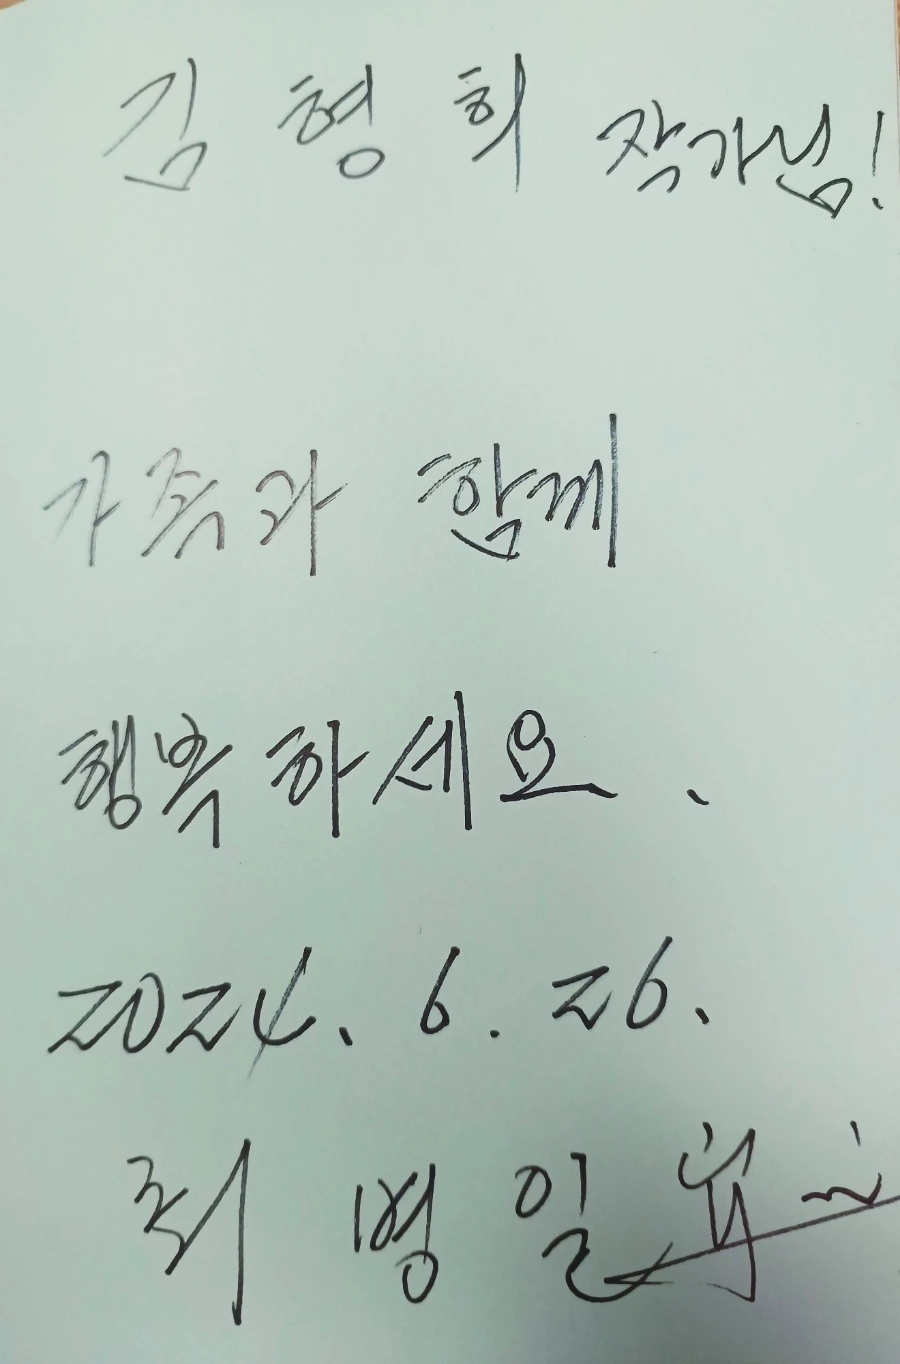 김 형 희 작가님!
가족과 함께
행복하세요.
2024. 6. 26.
최 병 일